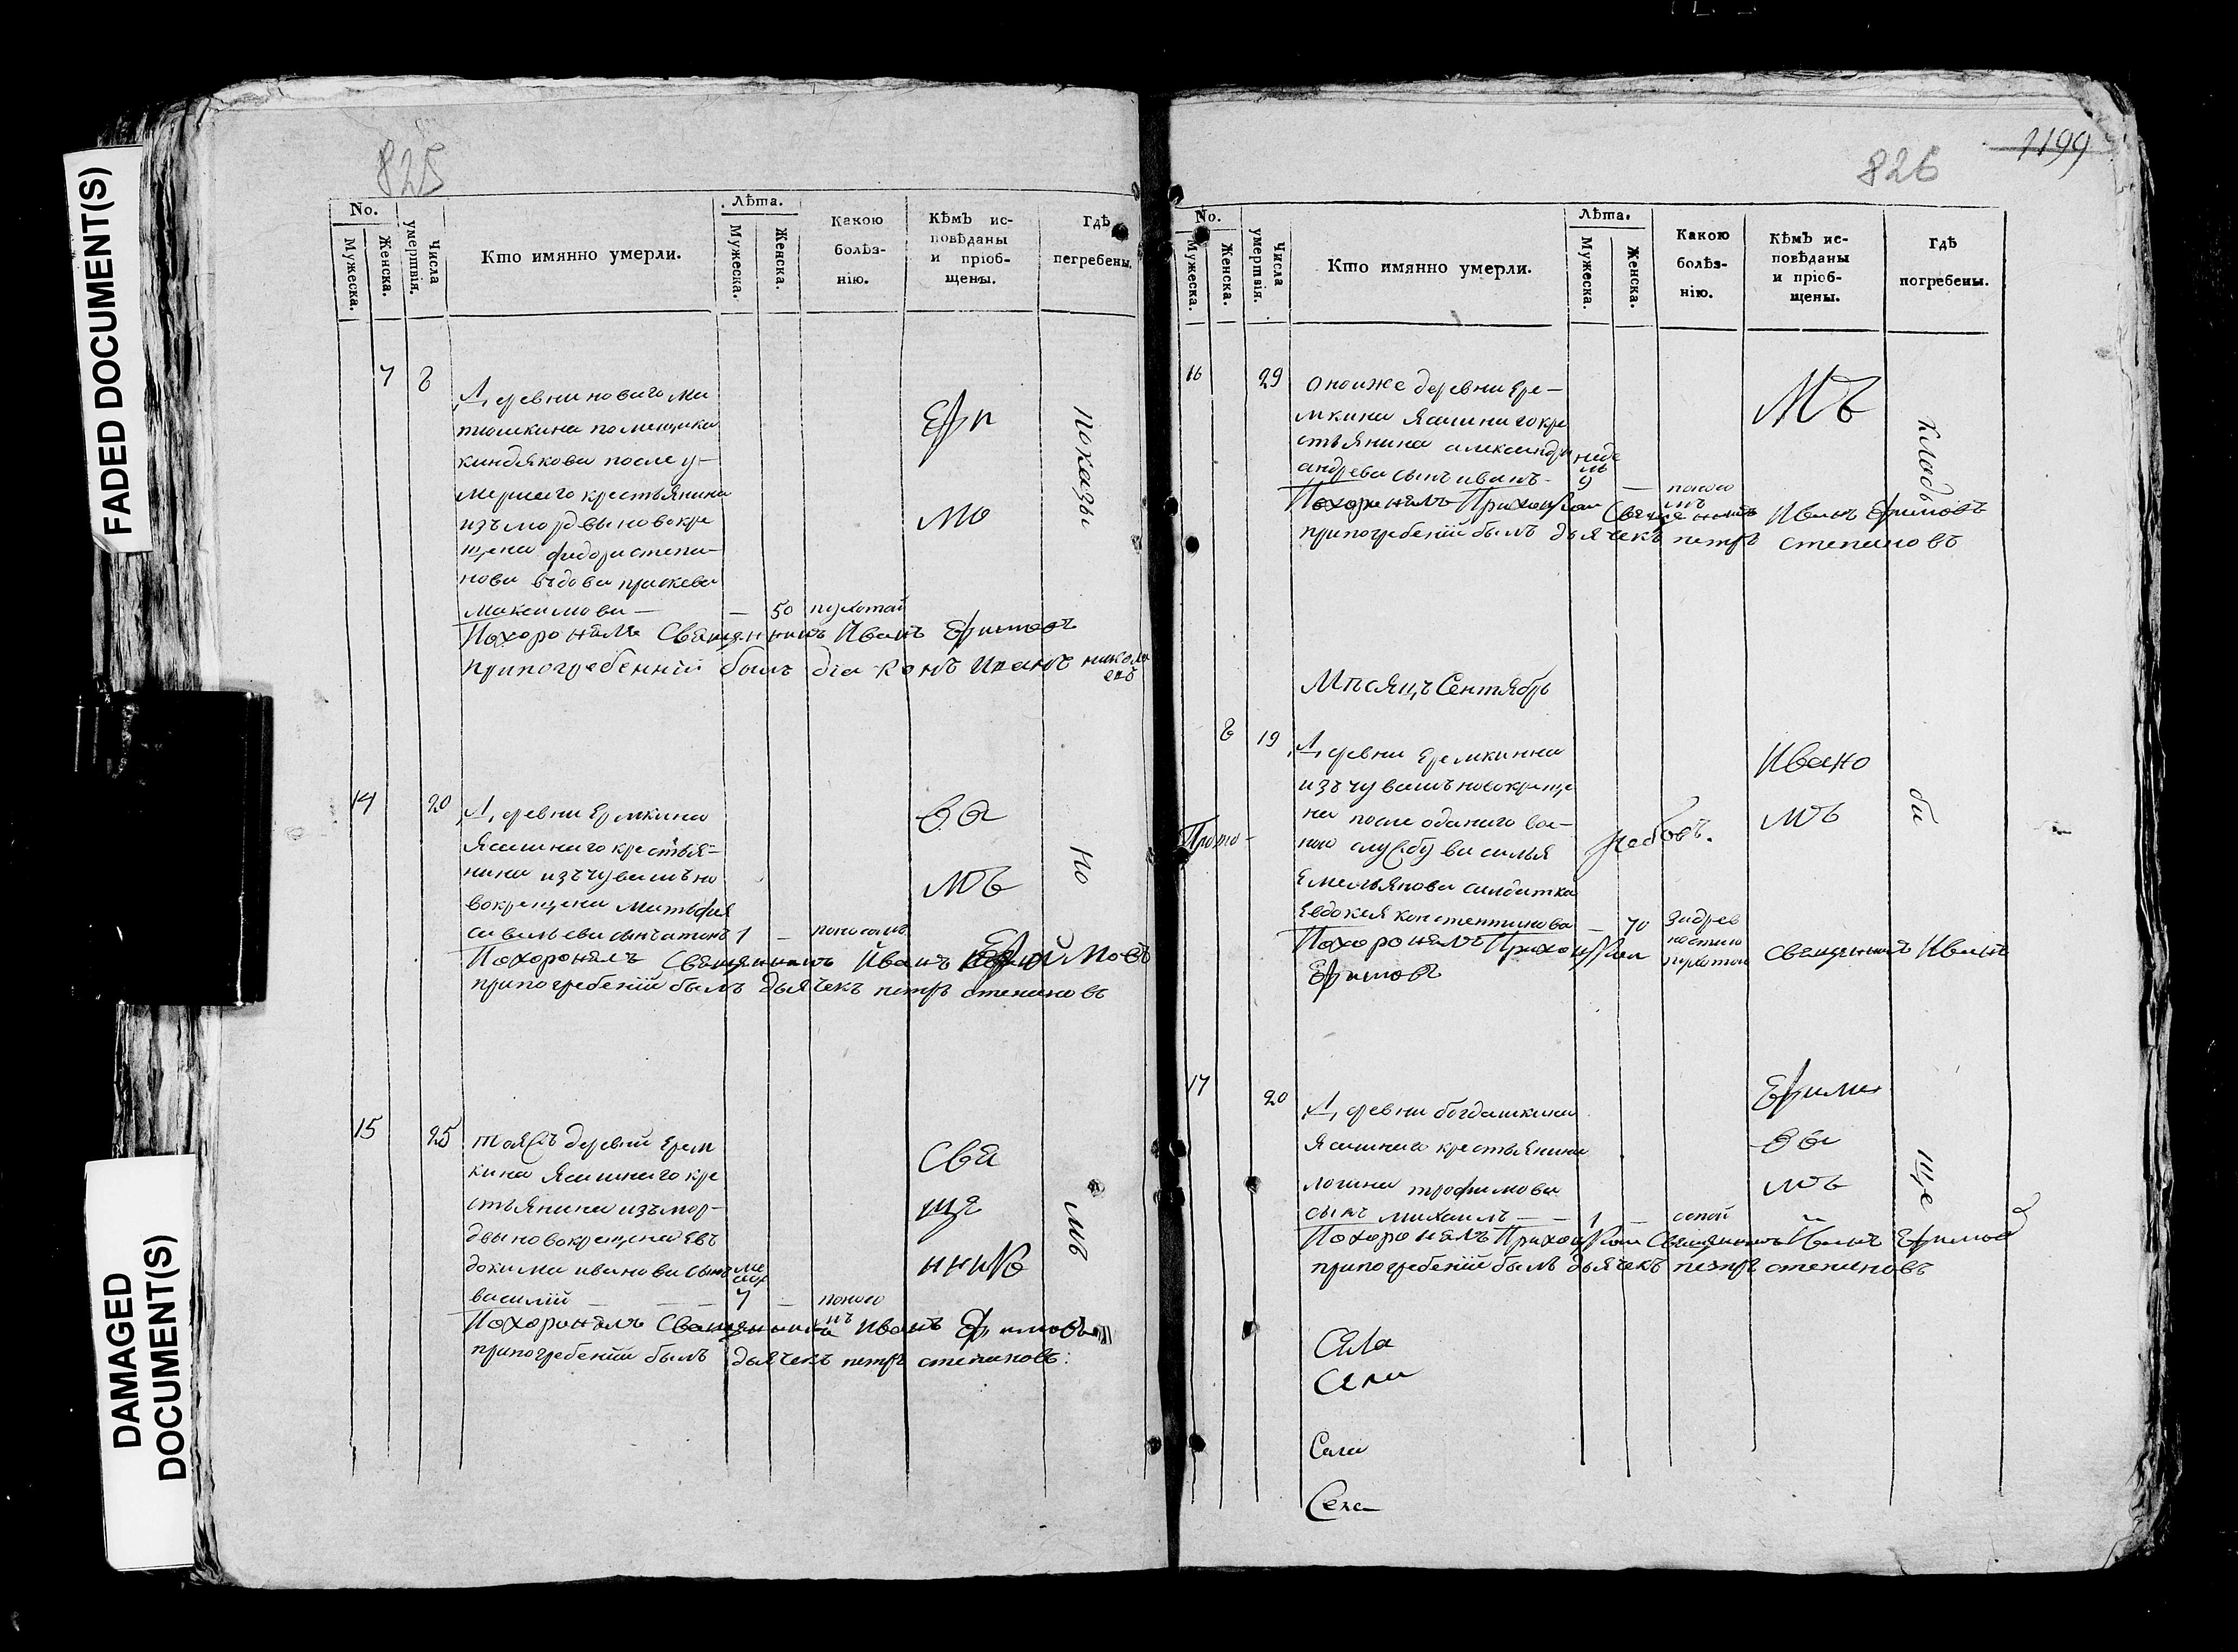 FADED DOCUMENT(S)
DAMAGED
DOCUMENT(S)
825
No.
Мужеска.
Женска.
Числа
умертвія.
Кто имянно умерли.
Лѣта.
Мужеска.
Женска.
Какою
болѣз-
нію.
Кѣмъ ис-
повѣданы
и пріоб-
щены.
Гдѣ
пегребены.
7
8
Деревни новаго ма
тюшкина помещика
киндякова после у-
мершаго крестьянина
изъ мордвы новокре
щена федора степа-
нова вдова праскева
максимова — — 50
Похоронилъ Священникъ Иванъ Ефимовъ
припогребенiй былъ діаконъ Иванъ никола
евъ
14
20
Деревни Ермкина
Ясашнаго крестья-
нина изъ чувашъ но
вокрещена матьфея
савельева сынъ антонъ 1 — поносомъ
Похоронилъ Священникъ Иванъ Ефимовъ
припогребенiй былъ дьячекъ петръ степановъ
15
25
тояжъ деревни Ерем
кина Ясашнаго кре
стьянина изъ мор-
двы новокрещена Ев
докима иванова сынъ ме
сец
василий — — — 7 — поносо
мъ
Похоронилъ Священникъ Иванъ Ефимовъ
припогребенiи былъ дьячекъ петръ степановъ:
Ефи
мо
ва
мъ
Свя
ще
ннико
мъ
Показы
но
мъ
826
1199
No.
Мужеска.
Женска.
Числа
умертвія.
Кто имянно умерли.
Лѣта.
Мужеска.
Женска.
Какою
болѣз-
нію.
Кѣмъ ис-
повѣданы
и пріоб-
щены.
Гдѣ
погребены.
16
29
оноиже деревни Ере-
мкина Ясашнаго кре
стьянина александра
андреева сынъ иванъ
неде
ль
9 — поносо
мъ
Похоронилъ Приходской Священникъ Иванъ Ефимовъ
припогребенiй былъ дьячекъ петръ степановъ
Мѣсяцъ Сентябрь
8
19
Деревни Еремкина
изъ чувашъ новокреще
на после оданаго вое-
ную службу василья
Емельянова салдатка
Евдокея констентинова — 70
Похоронилъ Приходской Священникъ Иванъ
Ефимовъ
17
20
Деревни богдашкина
Ясашнаго крестьянина
логина трофимова
сынъ михаилъ — — 1 — оспой
Похоронилъ Приходской Священникъ Иванъ Ефимов
припогребенiй былъ дьячекъ петръ степановъ
Мъ
Ивано
мъ
Ефимо
во
мъ
Кладь
би
ще